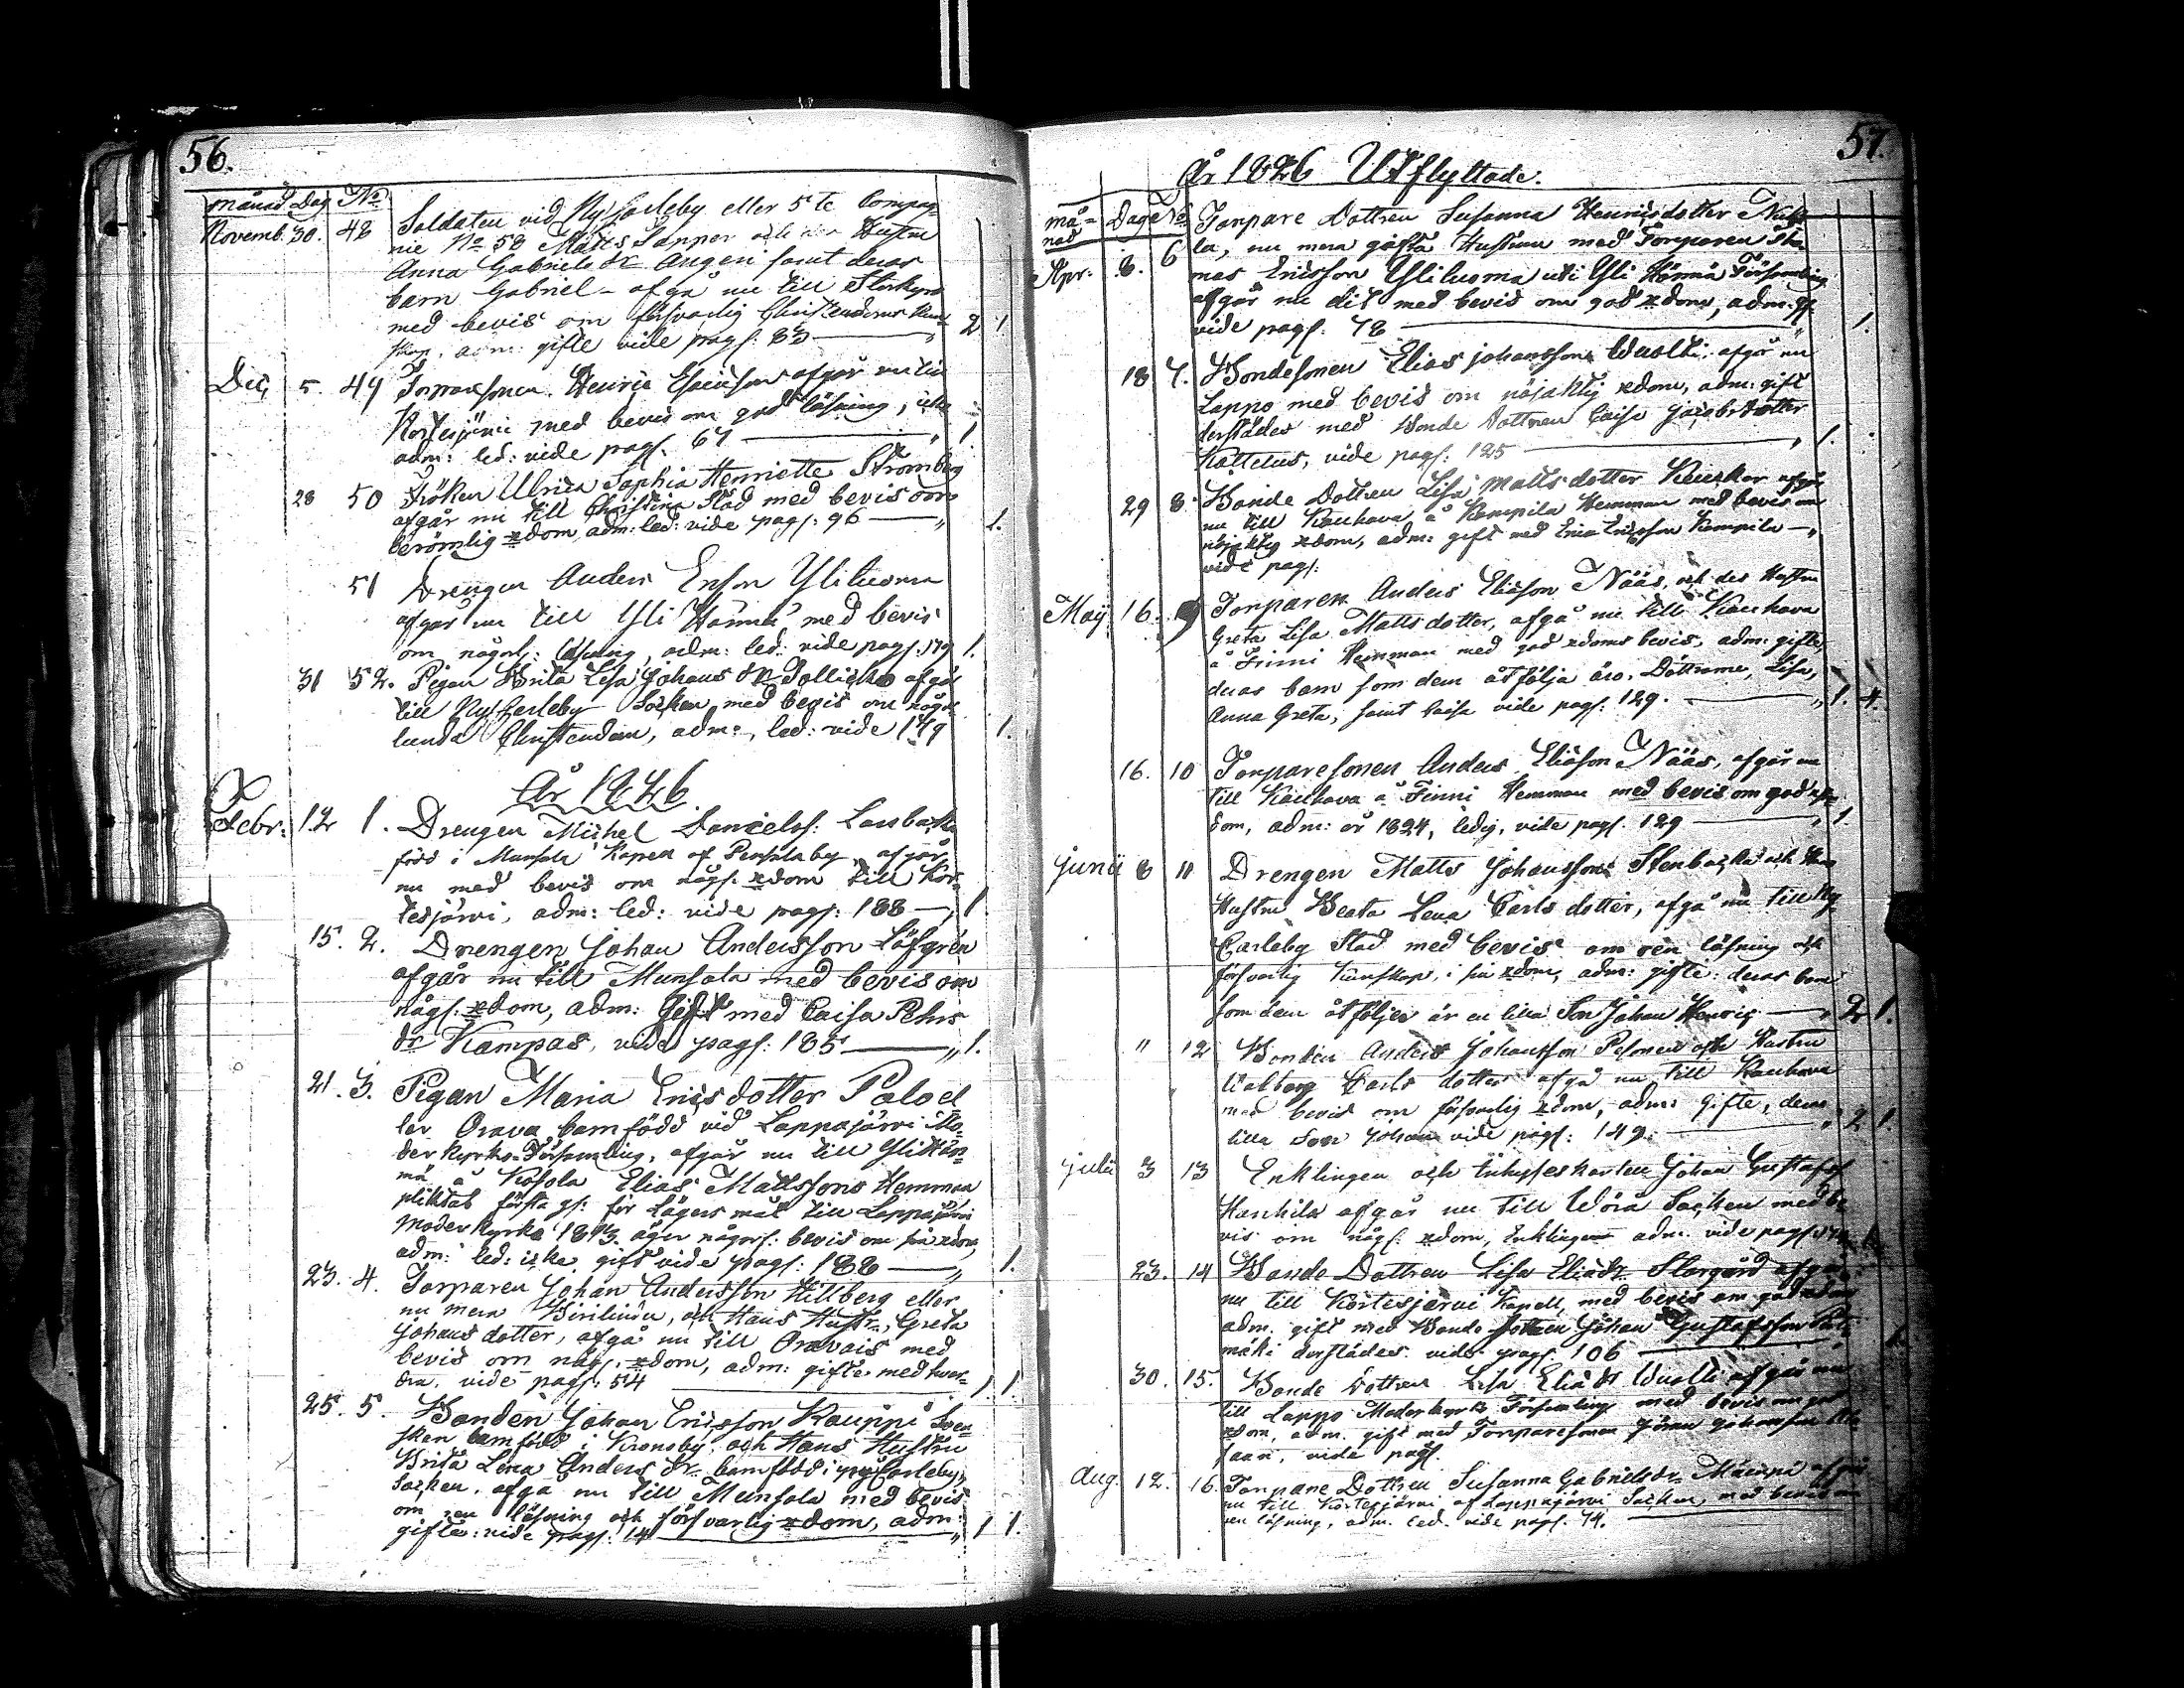 56.
månad Dag No
Novemb. 30. 48 Soldaten vid Ny Carleby eller 5te Compag-
nie No 58 Matts Tapper och Hustru
Anna Gabriels dr Angeri samt deras
barn Gabriel - afgå nu till Storkyro
med bevis om försvarlig Christendoms kun-
skap, adm: gifte vide pag: 83 " 2 1
Dec, 5. 49 Torparesonen Henric afgår nu till
Kortesjärvi med bevis om god läsning, icke
adm: led: vide pag: 67 " 1
28 50 Fröken Ulrica Sophia Henriette Stromberg
afgår nu till Christina Stad med bevis om
berömlig xdom, adm: led: vide pag: 96 " 1.
51 Drengen Anders Ersson Yliluoma
afgår nu till Yli Härmä med bevis
om någorl: läsning, adm: led: vide pag: 179 1.
31 52. Pigan Brita Lisa Johans dr afgår
till Ny Carleby Socken med bevis om någor-
lunda Christendom, adm:, led: vide 179 1.
År 1826.
Febr: 12 1. Drengen Michel Daniels: Lassbacka
född i Munsala Kapell af Pensala by, afgår
nu med bevis om någ: xdom till Kor-
tesjärvi, adm: led: vide pag: 188 " 1
15. 2. Drengen Johan Andersson Löfgrén
afgår nu till Munsala med bevis om
någ: xdom, adm: Gift med Caisa Pehrs
dr Kampas, vide pag: 185 " 1.
21. 3. Pigan Maria Erics dotter Palo el
ler Orava barnfödd vid Lappajärvi Mo-
der kyrko Församling, afgår nu till Yli Här-
mä å Kosola Elias Mattssons Hemman
pliktat första g: för Lägers mål till Lappajärvi
Moderkyrka 1813. äger någorl: bevis om sin xdom,
adm: led: icke gift vide pag: 188 " 1.
23. 4. Torparen Johan Andersson Hillberg eller
nu mera och Hans Hustr., Greta
Johans dotter, afgå nu till Oravais med
bevis om någ: xdom, adm: gifte med hvar-
dra, vide pag: 54 1. 1.
25. 5. Bonden Johan Ericsson Kauppi
barnfödd i Kronoby och Hans Hustru
Brita Lena Anders dr barnfödd i Ny Carleby
Socken, afgå nu till Munsala med bevis
om ren läsning och försvarlig xdom, adm:
gifte: vide pag: 14 " 1 1.
57.
År 1826 Utflyttade.
må-
nad Dag No
Apr. 8. 6 Torpare Dottren Susanna Henricsdotter
la, nu mera gifta Hustrun med Torparen Tho
mas Ericsson Yliluoma uti Yli Härmä Församling
afgår nu dit med bevis om god xdom, adm: gf.
vide pag: 78 " 1.
18 7. Bondesonen Elias Johansson Wuolti afgår nu
Lappo med bevis om nöjaktig xdom, adm: gift
derstädes med Bonde Dottren Caisa Jacobsdotter
vide pag: 125 " 1.
29 8. Bonde Dottren Lisa Matts dotter afgår
nu till Kauhava å Kempila Hemman med bevis om
nöjaktig xdom, adm: gift med Eric Ericsson Kempila "
vide pag:
Maij 16. 9 Torparen Anders Eliäson Nääs, och des Hustru
Greta Lisa Matts dotter, afgå nu till Kauhava
å Finni Hemman med god xdoms bevis, adm: gifte,
deras barn som dem åtfölja äro. Döttrarne, Lisa,
Anna Greta, samt Caisa vide pag: 129. " 1. 4.
16. 10 Torparesonen Anders Eliäson Nääs, afgår nu
till Kauhava å Finni Hemman med bevis om god
dom, adm: år 1824, ledig, vide pag: 129 " 1.
Junii 8 11 Drengen Matts Johansson Stenbacka och Hans
Hustru Beata Lena Carls dotter, afgå nu till Ny
Carleby Stad med bevis om ren läsning och
försvarlig kunskap i sin xdom, adm: gifte: deras barn
som dem åtföljer är en lilla Son Johan Henric " 2 1.
" 12 Bonden Anders Johansson Pesonen och Hustru
Walborg Carls dotter afgå nu till Kauhava
med bevis om försvarlig xdom, adm: gifte, deras
lilla Son Johan vide pag: 149. " 2 1.
Julii 3 13 Enklingen och Johan Gustafsf
afgår nu till Wörå Socken med be-
vis om någ: xdom, Enklingen adm. vide pag:
23. 14 Bonde Dottren Lisa Eliädr. Storgård afgår
nu till Kortesjervi Kapell, med bevis om god xdom
adm. gift med Bonde Johan Gustafsson
mäki derstädes. vide pag: 106 1.
30. 15. Bonde Dottren Lisa Eliädr Wuolti afgår nu
till Lappo Moderkyrko Församling med bevis om god
xdom, adm. gift med Torparesonen Johansson
vide pag.
Aug. 12. 16. Torpare Dottren Susanna Gabrielsdr Mäenpä afgår
nu till Kortesjärvi af Lappajärvi Socken, med bevis om
ren läsning, adm. led. vide pag: 74.